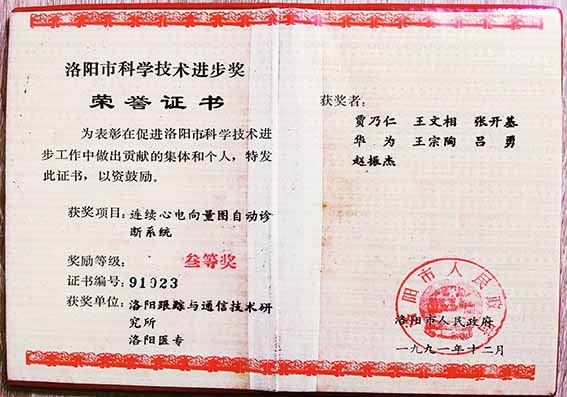 洛阳市科学技术进步奖
荣誉证书
为表彰在促进洛阳市科学技术进
步工作中做出贡献的集体和个人，特发
此证书，以资鼓励。
获奖项目：连续心电向量图自动诊
断系统
奖励等级：叁等奖
证书编号：91023
获奖单位：洛阳跟踪与通信技术研
究所
洛阳医专
获奖者：
贾乃仁 王文相 张开基
华为 王宗陶 吕勇
赵振杰
洛阳市人民政府
洛阳市人民政府
一九九一年十二月